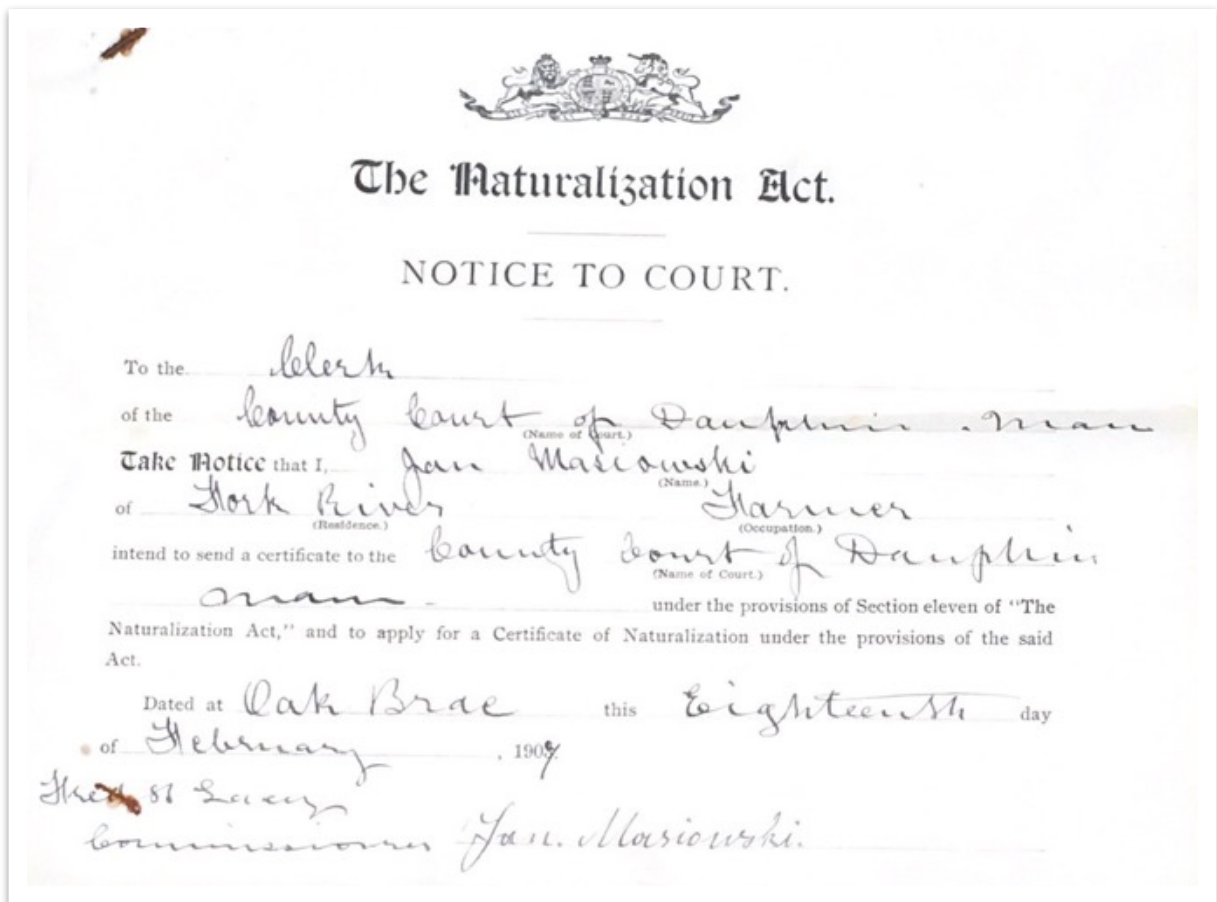 The Naturalization Act.
NOTICE TO COURT.
To the Clerk
of the County Court of Dauphin. Man
(Name of Court.)
Take Notice that I, Jan Masiowski
(Name.)
of Fork River Farmer
(Residence.) (Occupation.)
intend to send a certificate to the County Court of Dauphin
(Name of Court.)
Man. under the provisions of Section eleven of "The
Naturalization Act," and to apply for a Certificate of Naturalization under the provisions of the said
Act.
Dated at Oak Brae this Eighteenth day
of February, 190
Fred Lacey
Commissioner Jan. Masiowski.